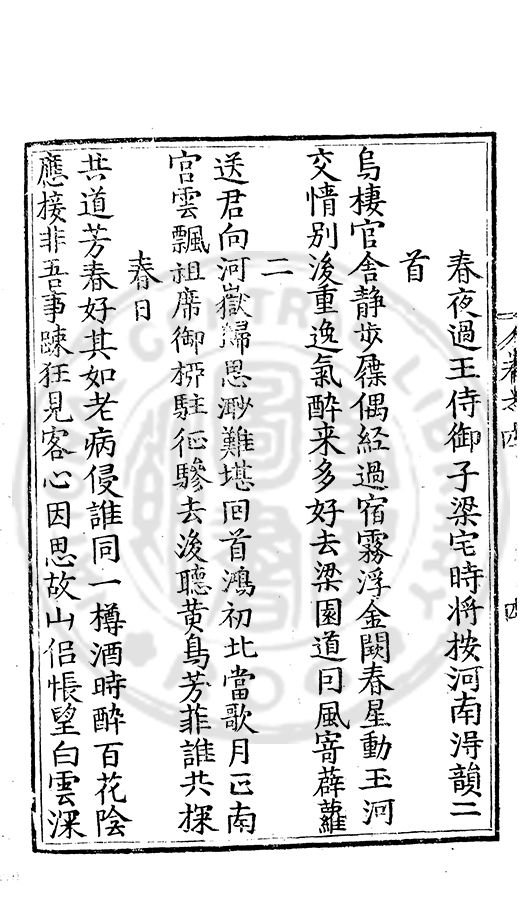 春夜過王侍御子梁宅時将按河南淂韻二
首
烏棲官舎静歩屧偶経過宿霧浮金闕春星動玉河
交情別淡重逸氣酔来多好去梁園道囘風寄薜蘿
二
送君向河嶽歸思渺難堪囘首鴻初北當歌月正南
宫雲飄祖席御栁駐征驂去後聴黄鳥芳菲誰共探
春日
共道芳春好其如老病侵誰同一樽酒時酔百花陰
應接非吾事踈狂見客心因思故山侣悵望白雲深
四